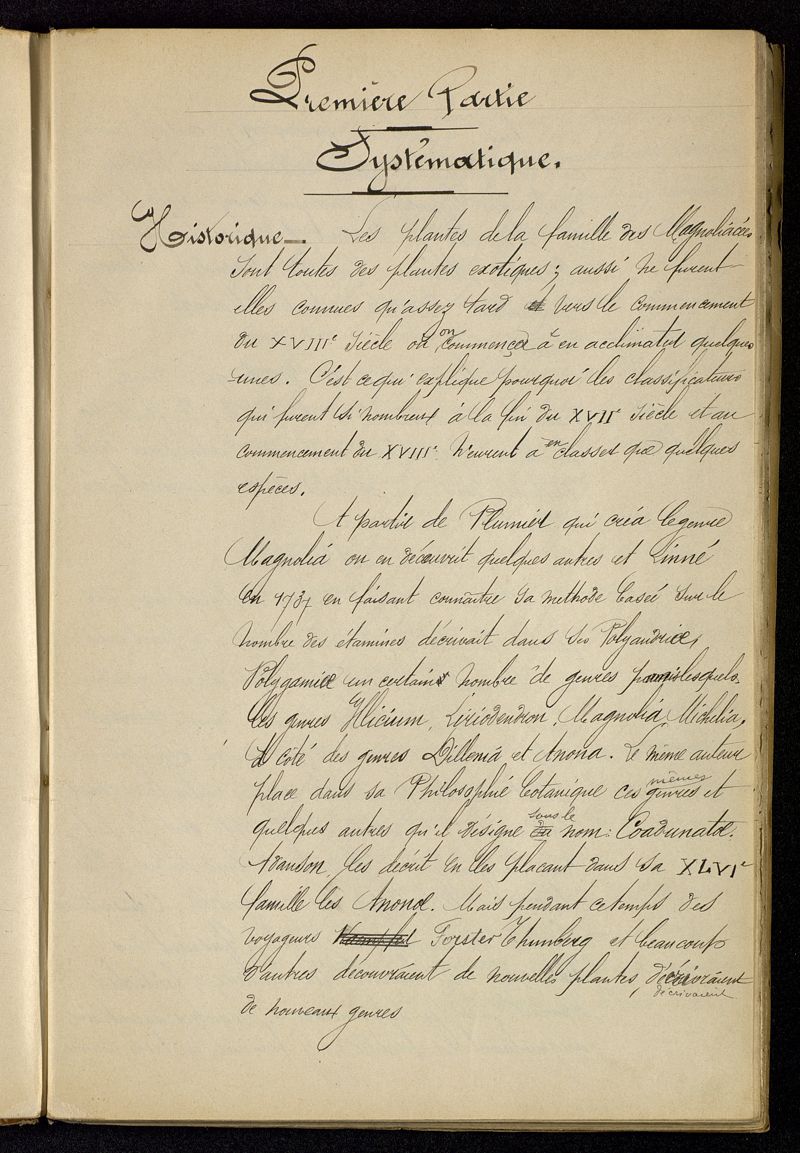 Première Partie
Systématique.
Historique. Les plantes de la famille des Magnoliacées
sont toutes des plantes exotiques; aussi ne furent
elles connues qu'assez tard et vers le commencement
du XVIIIe siècle où on commença à en acclimater quelques
unes. C'est ce qui explique pourquoi les classificateurs
qui furent si nombreux à la fin du XVIIe siècle et au
commencement du XVIIIe n'eurent à en classer que quelques
espèces.
A partir de Plumier qui créa le genre
Magnolia on en découvrit quelques autres et Linné
en 1737 en faisant connaître sa methode basée sur le
nombre des étamines décrivait dans ses Polyandriæ,
Polygamiæ un certain nombre de genres parmi lesquels
les genres Illicium, Liriodendron, Magnolia, Michelia,
à côté des genres Dillenia et Anona. Le même auteur
place dans sa Philosophie botanique ces mêmes genres et
quelques autres qu'il désigne sous le nom: Coadunatæ.
Adanson, les décrit en les plaçant dans sa XLVIe
famille les Anonæ. Mais pendant ce temps des
voyageurs Forster Thunberg et beaucoup
d'autres découvraient de nouvelles plantes, décrivaient
décrivaient
de nouveaux genres